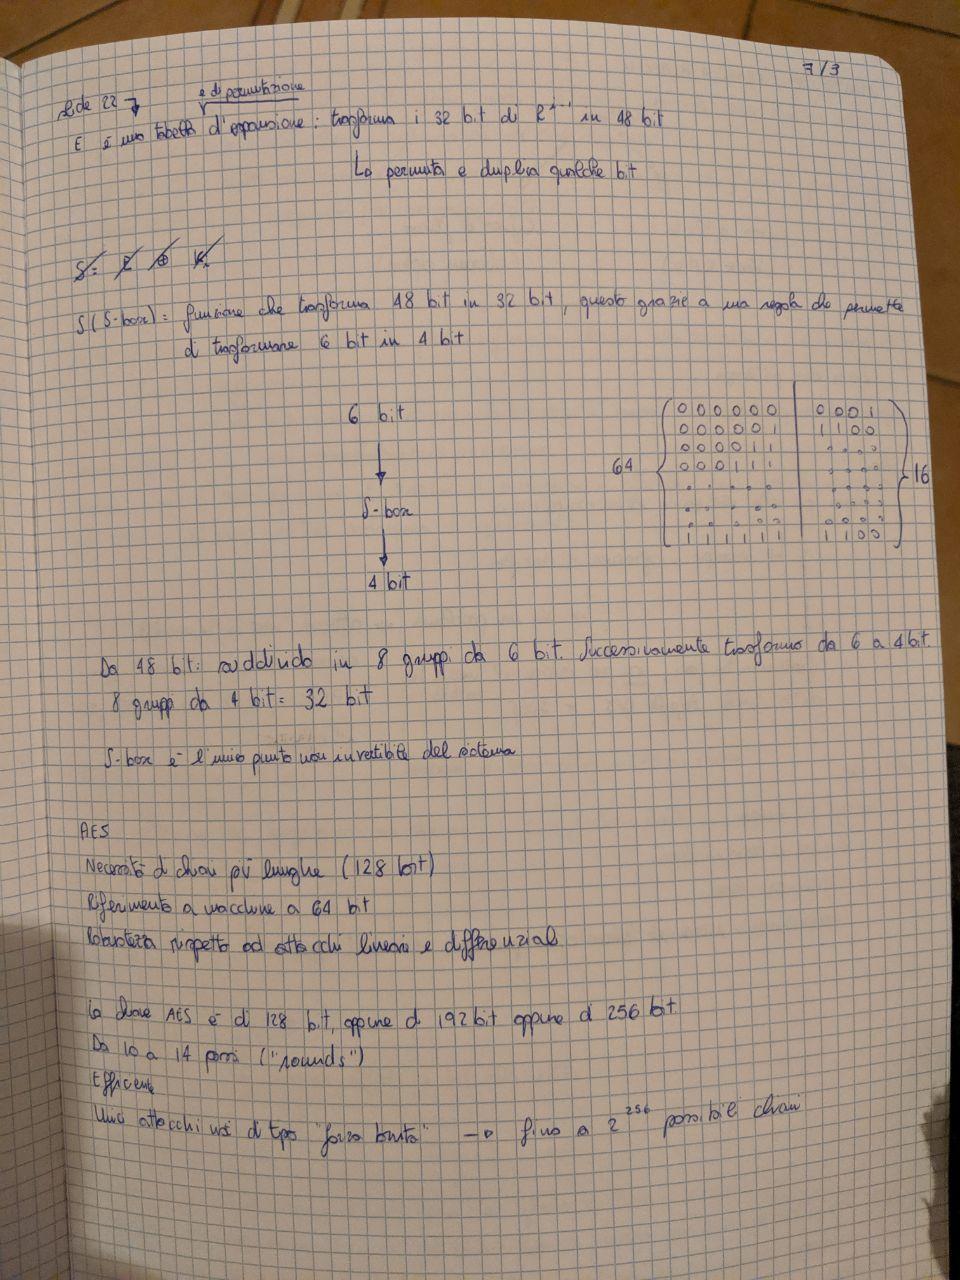 7/3
Slide 22
e di permutazione
E è una tabella d'espansione: trasforma i 32 bit di R^i-1 in 48 bit
Lo permuta e duplica qualche bit
S: E ⊕ K
S (S-box) = funzione che trasforma 48 bit in 32 bit, questo grazie a una regola che permette
di trasformare 6 bit in 4 bit
6 bit
S-box
4 bit
64
0 0 0 0 0 0 | 0 0 0 1
0 0 0 0 0 1 | 1 1 0 0
0 0 0 0 1 1
0 0 0 1 1 1
1 1 1 1 1 1 | 1 1 0 0
16
Da 48 bit: suddivido in 8 gruppi da 6 bit. Successivamente trasformo da 6 a 4 bit.
8 gruppi da 4 bit = 32 bit
S-box è l'unico punto non invertibile del sistema
AES
Necessità di chiavi più lunghe (128 bit)
Riferimento a macchine a 64 bit
Robustezza rispetto ad attacchi lineari e differenziali
La chiave AES è di 128 bit, oppure di 192 bit oppure di 256 bit
Da 10 a 14 passi ("rounds")
Efficiente
Unici attacchi noti di tipo "forza bruta" → fino a 2^256 possibili chiavi